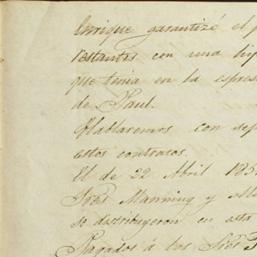 Enrique garantizó el p
restantes con una hip
que tenia en la espres
de Paul.
Hablaremos con sep
estos contratos.
El de 22 Abril 185
Sres Manning y Ma
se distribuyeron en esta
Pagados á los Sres